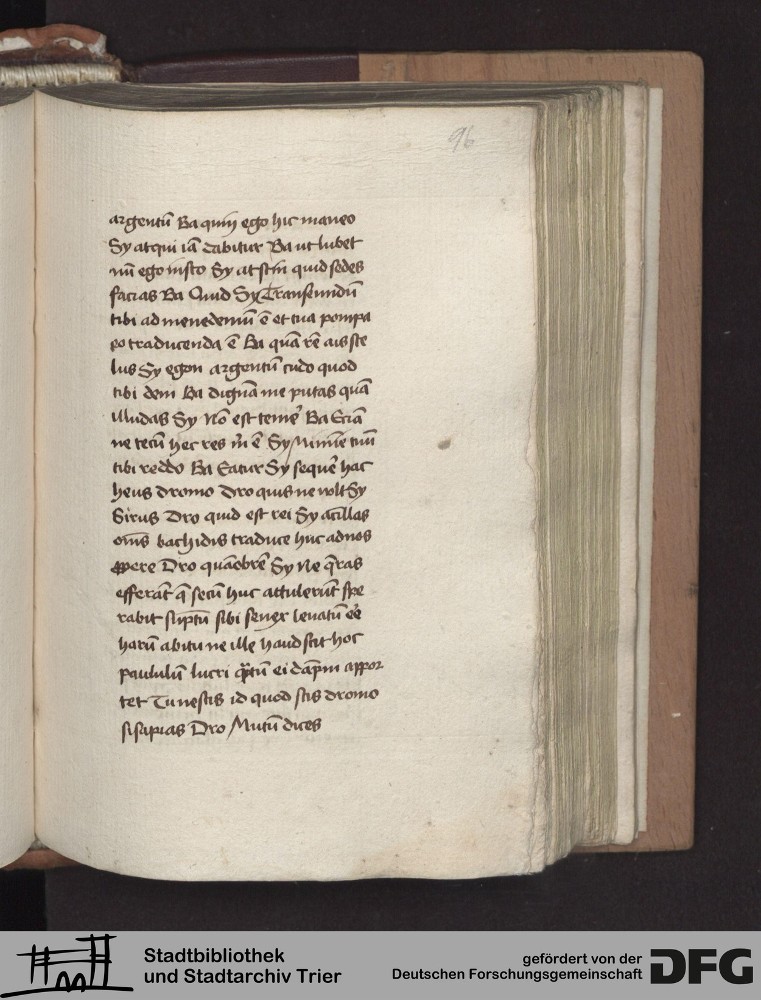 96
argentū Ba quin ego hic maneo
Sy atqui iā dabitur Ba ut lubet
nū ego insto Sy at scin quid sodes
facias Ba Quid Sy Transeundū
tibi ad menedemū ē et tua pompa
eo traducenda ē Ba quā rē ais sce
lus Sy egon argentū cudo quod
tibi dem Ba dignā me putas quā
illudas Sy Nō est temē Ba Eciā
ne tecū hec res m̄ ē Sy Minime tuū
tibi reddo Ba Eatur Sy sequē hac
heus dromo Dro quis me volt Sy
Sirus Dro quid est rei Sy ācillas
om̄s bachidis traduce huc ad nos
propere Dro quāobrē Sy Ne q̄ras
efferāt q̄ secū huc attulerūt spe
rabit sūptū sibi senex levatū eē
harū abitu ne ille haud scit hoc
paululū lucri q̄ntū ei dāpni appor
tet Tu nescis id quod scis dromo
si sapias Dro Mutū dices
Stadtbibliothek
und Stadtarchiv Trier
gefördert von der
Deutschen Forschungsgemeinschaft
DFG